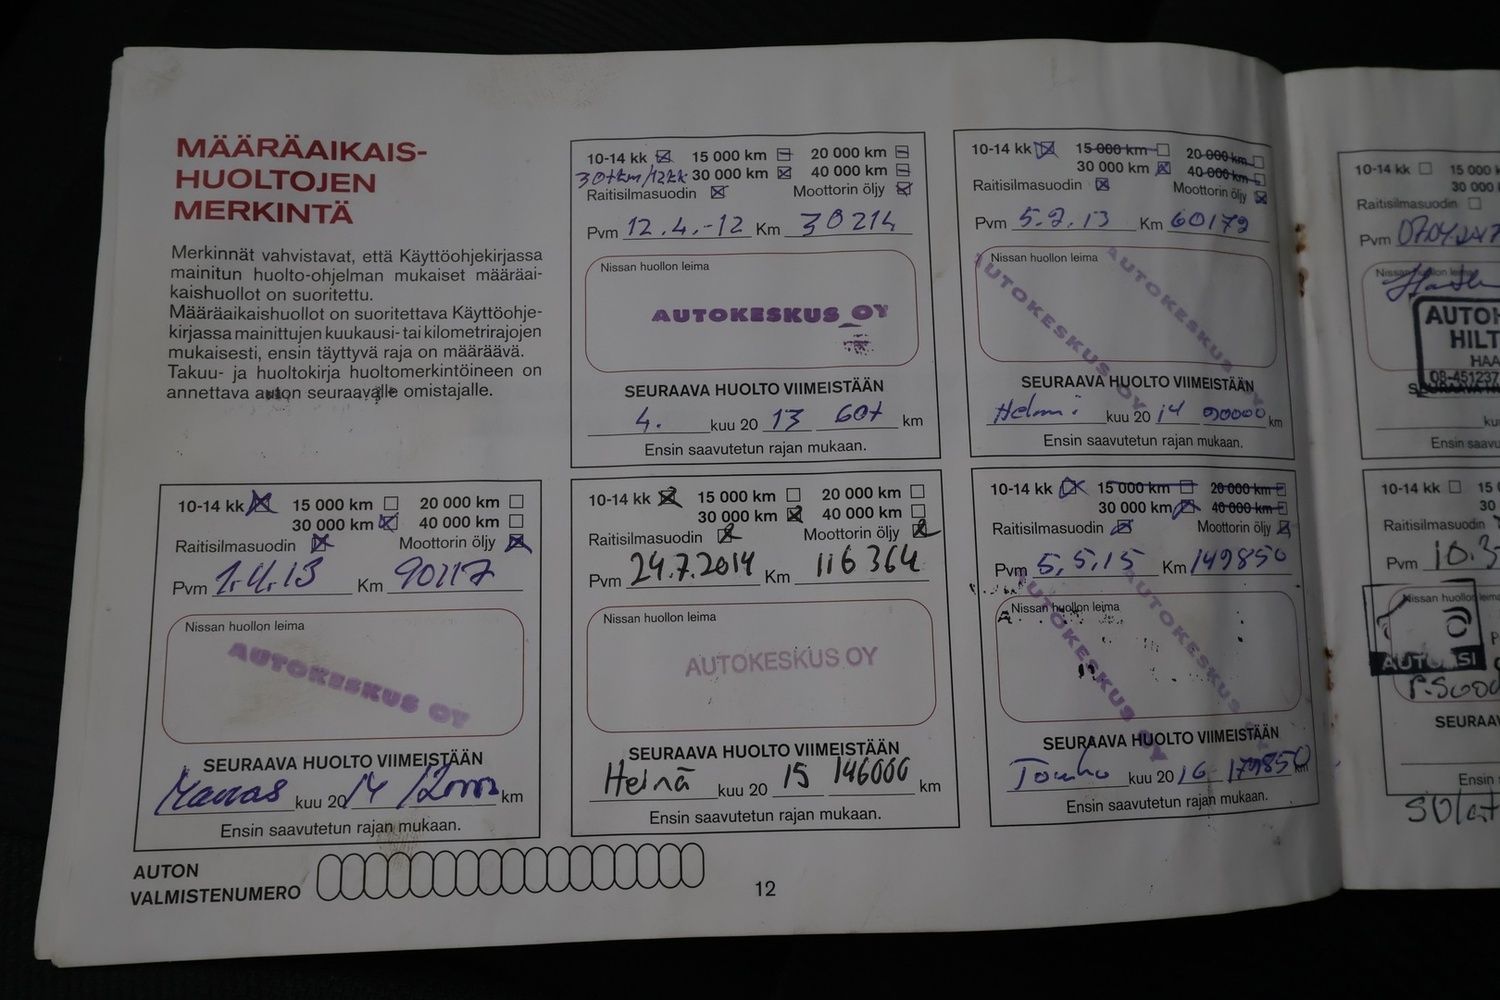 MÄÄRÄAIKAIS-
HUOLTOJEN
MERKINTÄ
Merkinnät vahvistavat, että Käyttöohjekirjassa
mainitun huolto-ohjelman mukaiset määräai-
kaishuollot on suoritettu.
Määräaikaishuollot on suoritettava Käyttöohje-
kirjassa mainittujen kuukausi- tai kilometrirajojen
mukaisesti, ensin täyttyvä raja on määräävä.
Takuu- ja huoltokirja huoltomerkintöineen on
annettava auton seuraavalle omistajalle.
10-14 kk 15 000 km 20 000 km
30tkm/12kk 30 000 km 40 000 km
Raitisilmasuodin Moottorin öljy
Pvm 12.4.-12 Km 30214
Nissan huollon leima
AUTOKESKUS OY
SEURAAVA HUOLTO VIIMEISTÄÄN
4. kuu 20 13 60t km
Ensin saavutetun rajan mukaan.
10-14 kk 15 000 km 20 000 km
30 000 km 40 000 km
Raitisilmasuodin Moottorin öljy
Pvm 5.2.13 Km 60179
Nissan huollon leima
AUTOKESKUS OY
AUTOKESKUS OY
SEURAAVA HUOLTO VIIMEISTÄÄN
Helmi kuu 20 14 90000 km
Ensin saavutetun rajan mukaan.
10-14 kk 15 000
30 000
Raitisilmasuodin
Pvm
Nissan huollon leima
HILT
HAA
08-451237
kuu
Ensin saavu
10-14 kk 15 000 km 20 000 km
30 000 km 40 000 km
Raitisilmasuodin Moottorin öljy
Pvm Km 90117
Nissan huollon leima
AUTOKESKUS OY
SEURAAVA HUOLTO VIIMEISTÄÄN
kuu 20 14 km
Ensin saavutetun rajan mukaan.
10-14 kk 15 000 km 20 000 km
30 000 km 40 000 km
Raitisilmasuodin Moottorin öljy
Pvm 24.7.2014 Km 116 364
Nissan huollon leima
AUTOKESKUS OY
SEURAAVA HUOLTO VIIMEISTÄÄN
Heinä kuu 20 15 146000 km
Ensin saavutetun rajan mukaan.
10-14 kk 15 000 km 20 000 km
30 000 km 40 000 km
Raitisilmasuodin Moottorin öljy
Pvm 5.5.15 Km 149850
Nissan huollon leima
AUTOKESKUS OY
AUTOKESKUS OY
SEURAAVA HUOLTO VIIMEISTÄÄN
Touko kuu 20 16 179850 km
Ensin saavutetun rajan mukaan.
10-14 kk 15
30
Raitisilmasuodin
Pvm 10.3
Nissan huollon leima
SEURAAV
Ensin
AUTON
VALMISTENUMERO
12